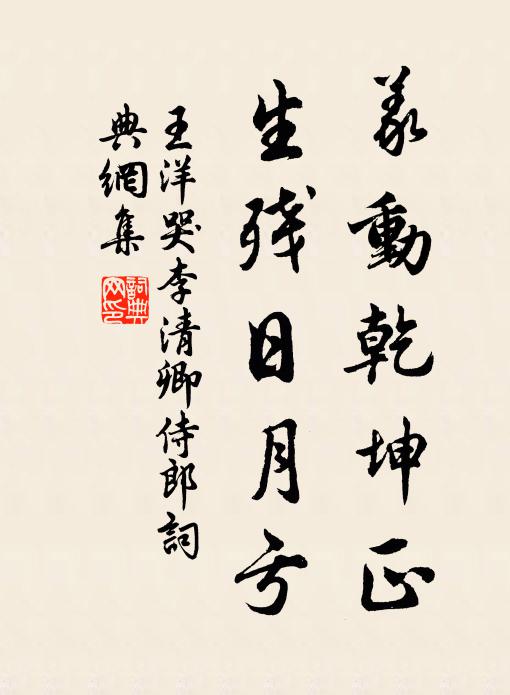 義動乾坤正
生殘日月亏
王洋哭李清卿侍郎詞
典網集
詞典
网印